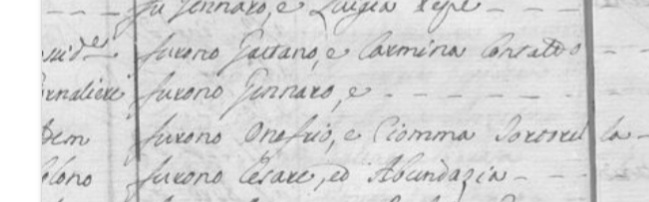 fu Gennaro, e Luigia Pepe
furono Gaetano, e Carmina
ornalieri furono Gennaro, e
Dem furono Onofrio, e Ciomma la
olono furono Cesare, ed Abundazia